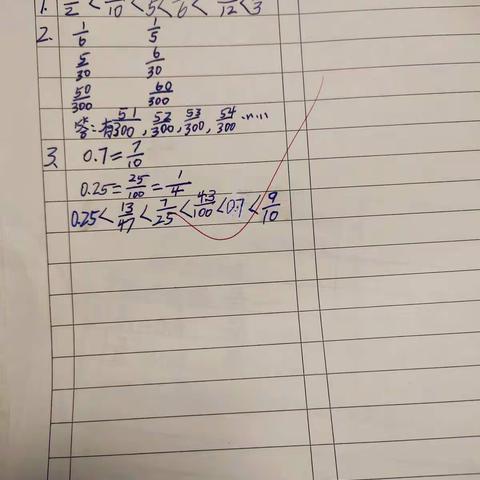 1. /2 < /10 < /5 < /6 < /12 < /3
2. 1/6 1/5
5/30 6/30
50/300 60/300
答:有51/300,52/300,53/300,54/300……
3. 0.7=7/10
0.25=25/100=1/4
0.25<13/47<7/25<43/100<0.7<9/10